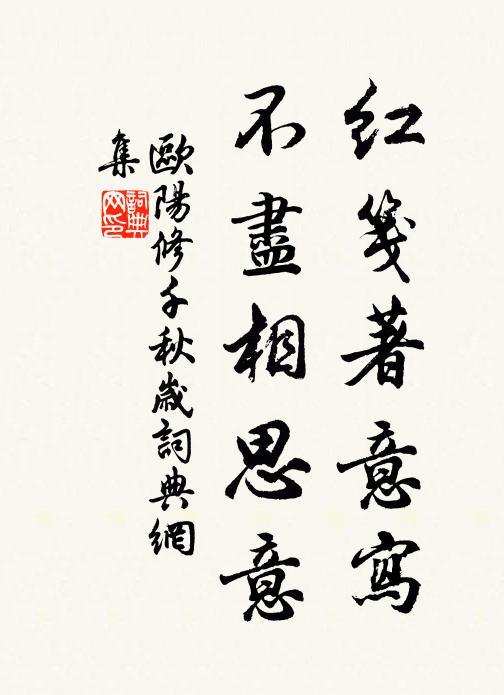 红箋著意寫
不盡相思意
歐陽修千秋歲詞典網
集
詞典
网印